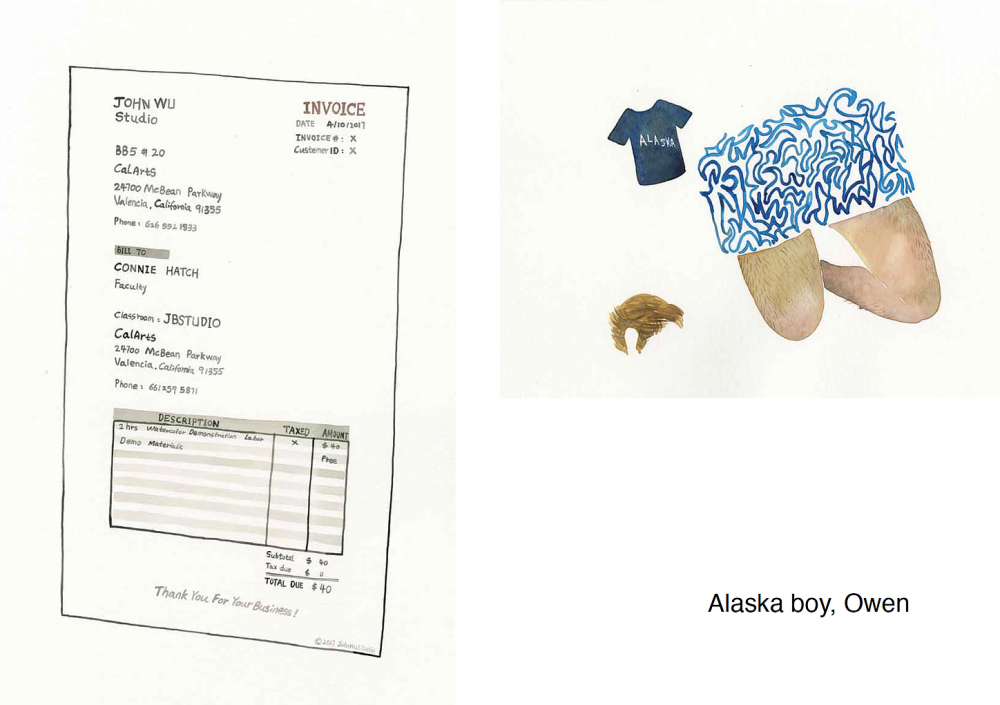 JOHN WU
Studio
INVOICE
DATE 4/10/2017
INVOICE #: X
Customer ID: X
BB5 # 20
CalArts
24700 McBean Parkway
Valencia, California 91355
Phone: 626 592 1933
BILL TO
CONNIE HATCH
Faculty
Classroom: JBSTUDIO
CalArts
24700 McBean Parkway
Valencia, California 91355
Phone: 661 259 5871
DESCRIPTION TAXED AMOUNT
2 hrs Watercolor Demonstration Labor X $40
Demo Materials Free
Subtotal $ 40
Tax due $ 0
TOTAL DUE $40
Thank You For Your Business!
©2017
ALASKA
Alaska boy, Owen